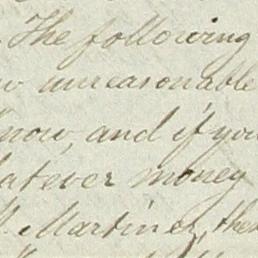 The following
unreasonable
know, and if you
whatever money
Martinez, then